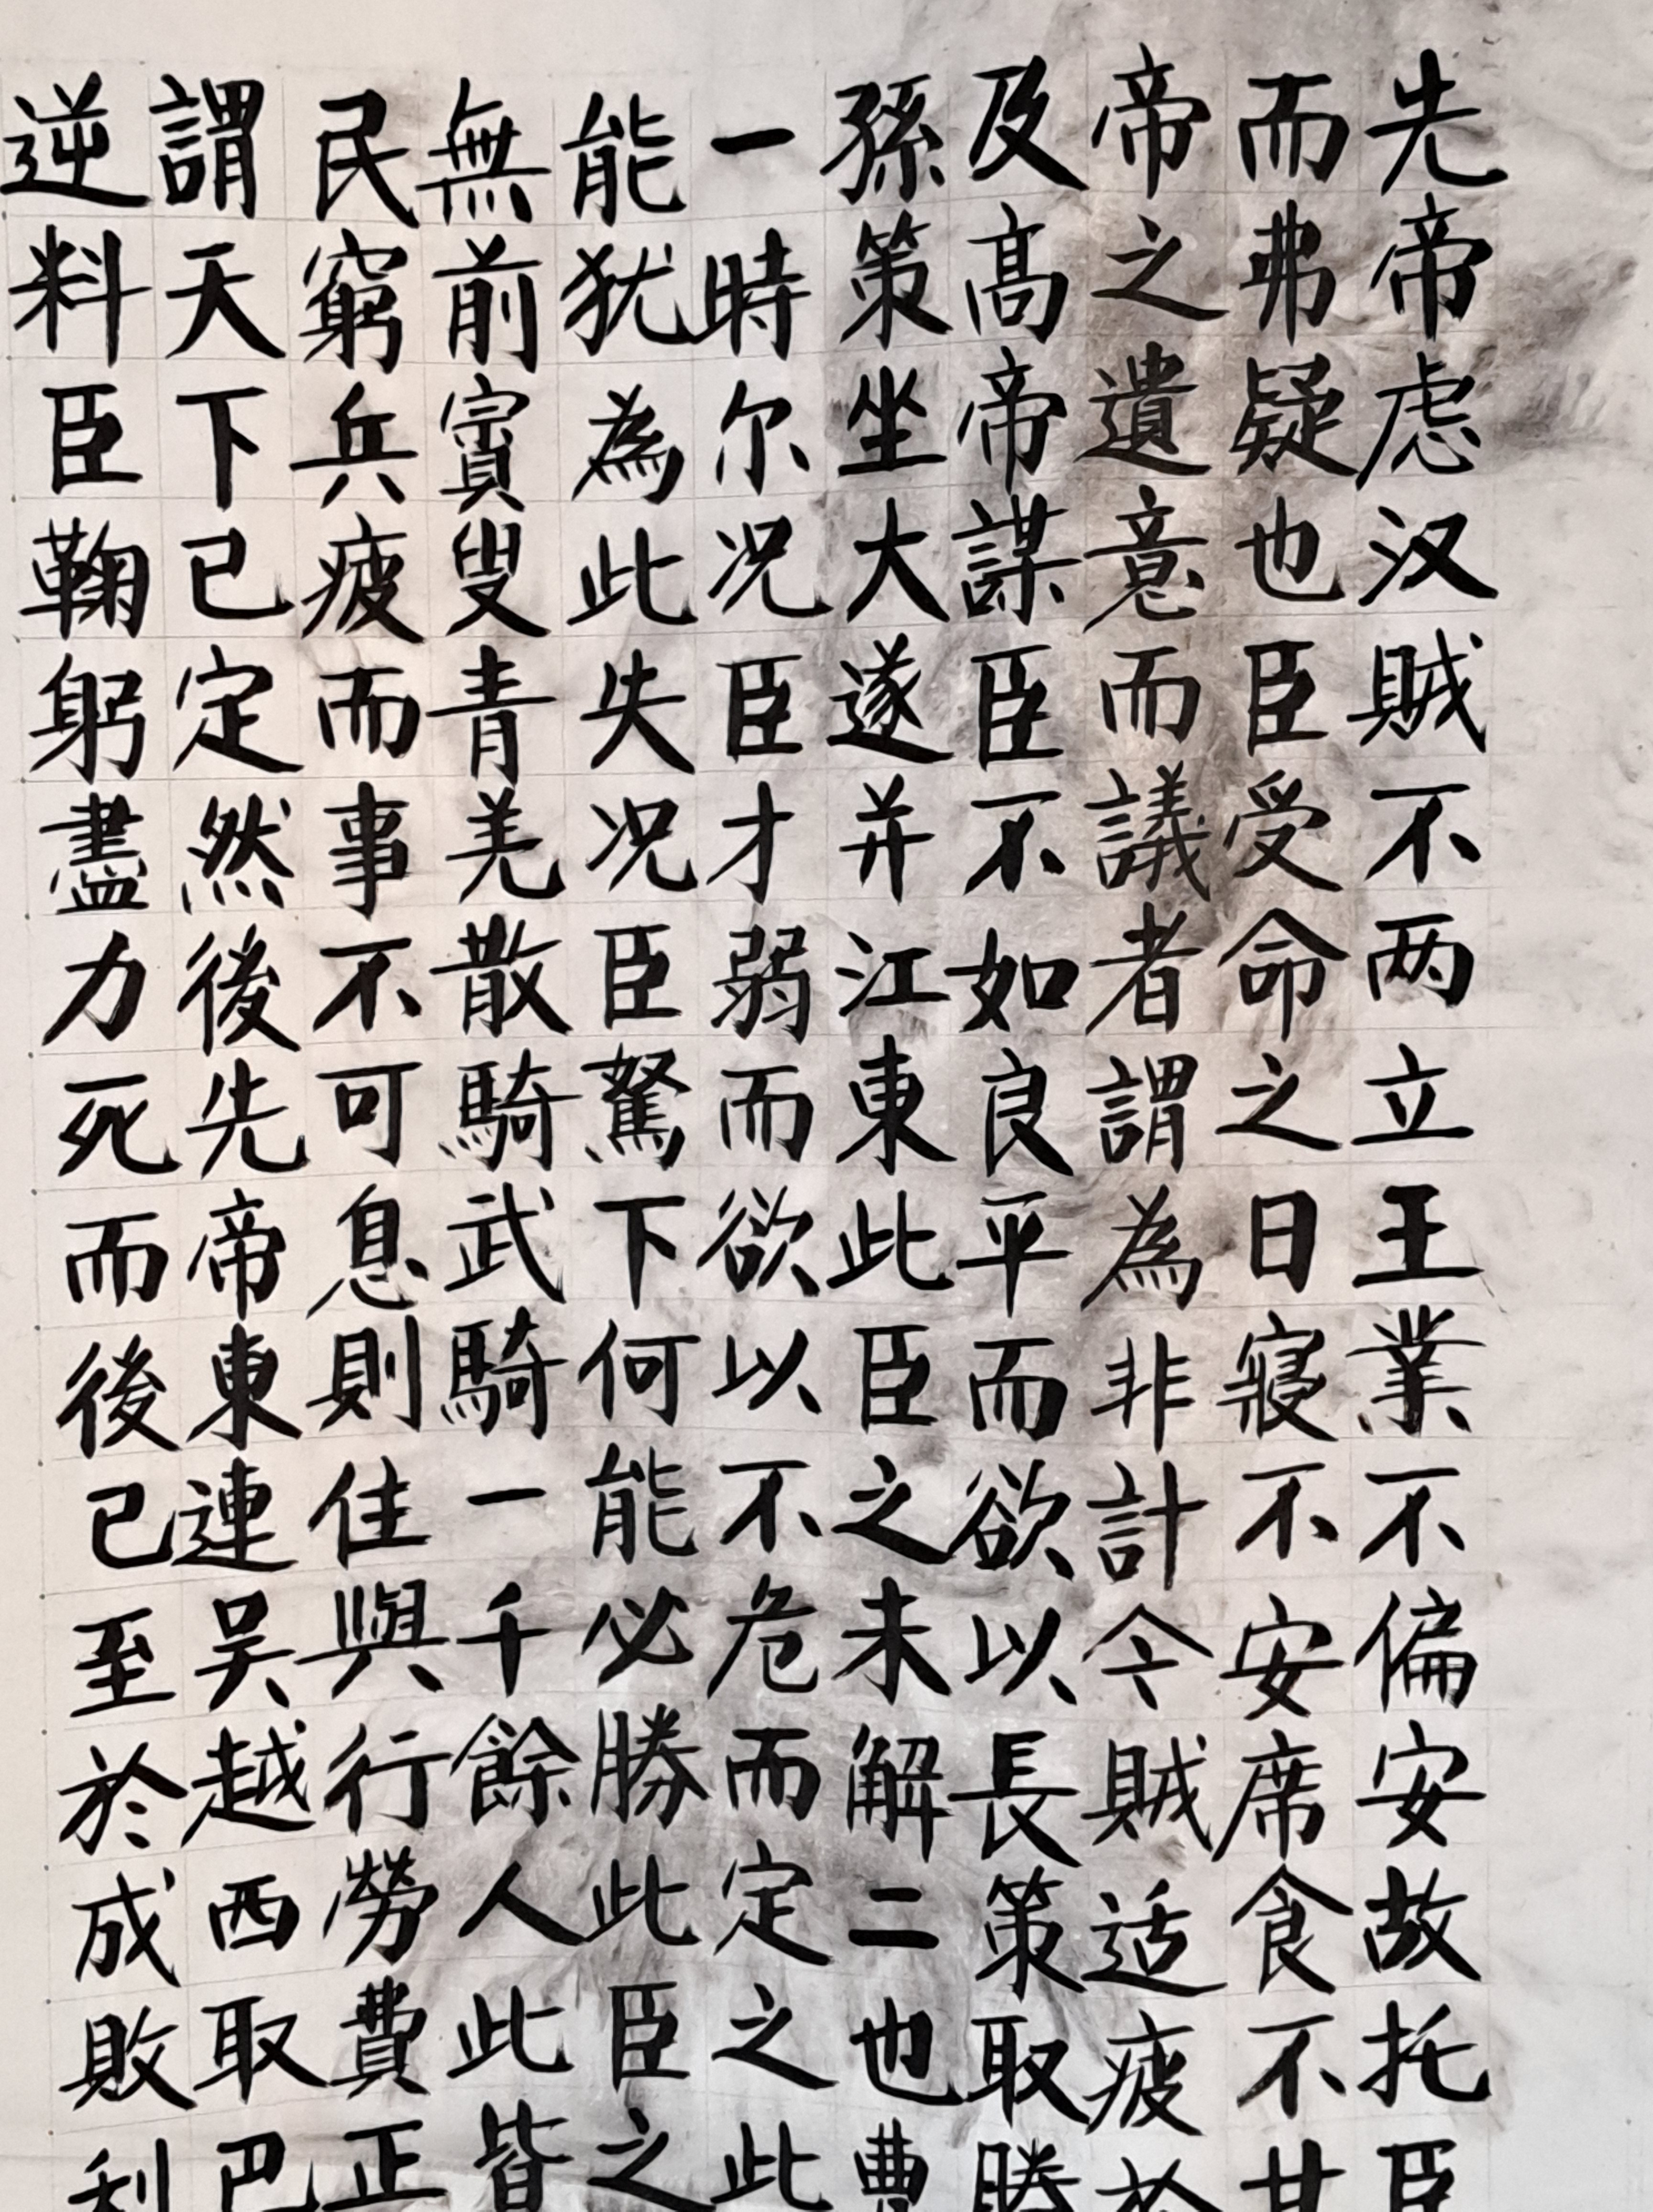 先帝虑汉賊不两立王業不偏安故托臣
而弗疑也臣受命之日寢不安席食不甘
帝之遺意而議者謂為非計今賊适疲於
及高帝謀臣不如良平而欲以長策取勝
孫策坐大遂并江東此臣之未解二也曹
一時尔况臣才弱而欲以不危而定之此
能犹為此失况臣駑下何能必勝此臣之
無前賨叟青羌散騎武騎一千餘人此皆
民窮兵疲而事不可息則住與行勞費正
謂天下已定然後先帝東連吴越西取巴
逆料臣鞠躬盡力死而後已至於成敗利